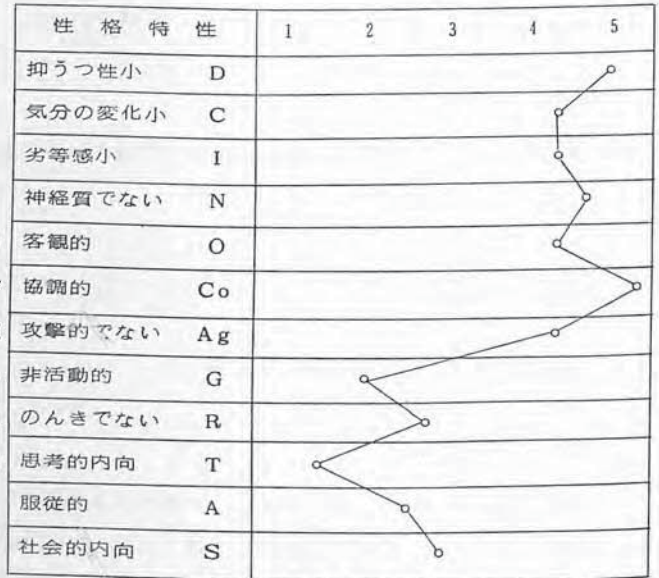 性格特性 1 2 3 4 5
抑うつ性小 D
気分の変化小 C
劣等感小 I
神経質でない N
客観的 O
協調的 Co
攻撃的でない Ag
非活動的 G
のんきでない R
思考的内向 T
服従的 A
社会的内向 S